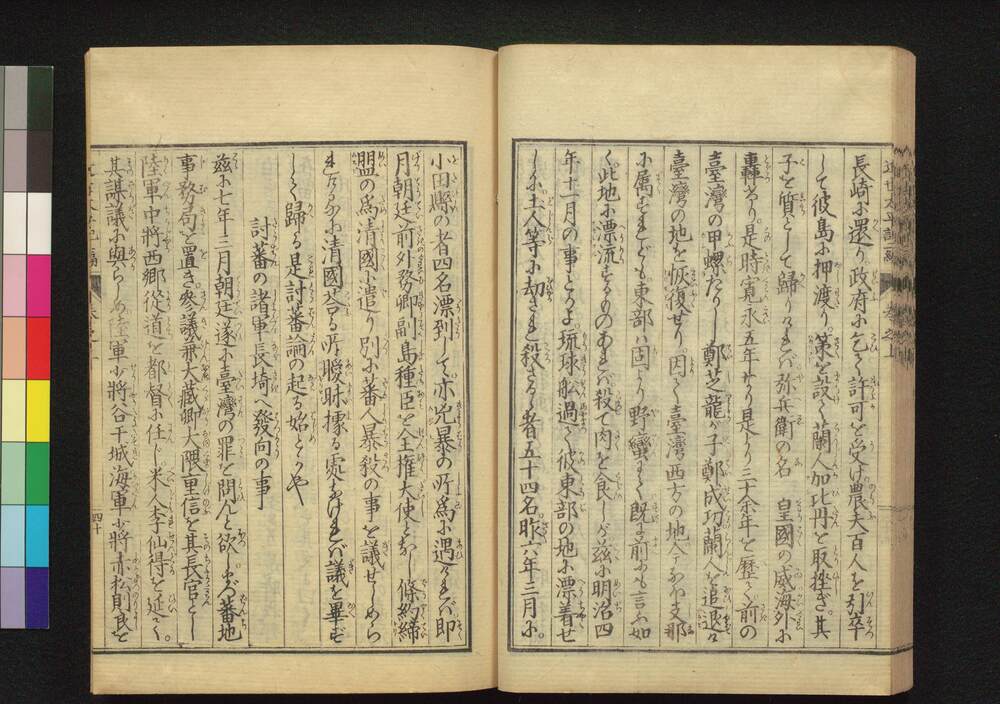 長崎に還り政府に乞て許可を受け農夫百人を引卒
して彼島に押渡り。策を設て蘭人加比丹を取挫ぎ。其
子を質として歸りければ弥兵衛の名　皇國の威海外に
轟けり。是時寛永五年なり是より三十余年を歴て前の
臺灣の甲螺たりし鄭芝龍が子鄭成功蘭人を追退け
臺灣の地を恢復せり。因て臺灣西方の地今なほ支那
に属すれども東部は固より野蠻にて既に前にも言ふ如
く。此地に漂流するものあれば殺て肉を食しが茲に明治四
年十一月の事とかよ。琉球船過て彼東部の地に漂着せ
しに土人等に劫され殺さるゝ者五十四名。昨六年三月に。
小田縣の者四名漂到して。亦兇暴の所爲に遇ければ即
月朝廷前外務卿副島種臣を全權大使となし條約締
盟の爲清國に遣り別に蕃人暴殺の事を議せしめら
れけるに清國荅る所曖昧據る處なければ議を畢ず
して歸る是討蕃論の起る始とかや
討蕃の諸軍長埼へ發向の事
茲に七年三月朝廷遂に臺灣の罪を問んと欲し給ひ蕃地
事務局を置き。參議兼大藏卿大隈重信を其長官とし
陸軍中將西郷從道を都督に任じ。米人李仙得を延て。
其謀議に與らしめ陸軍少將谷干城海軍少將赤松則良を